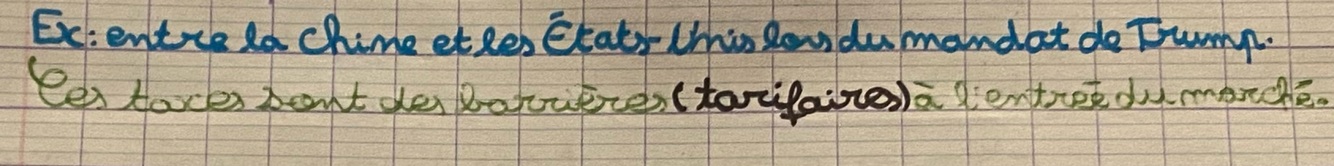 Ex: entre la Chine et les États-Unis lors du mandat de Trump.
Ces taxes sont des barrières (tarifaires) à l'entrée du marché.